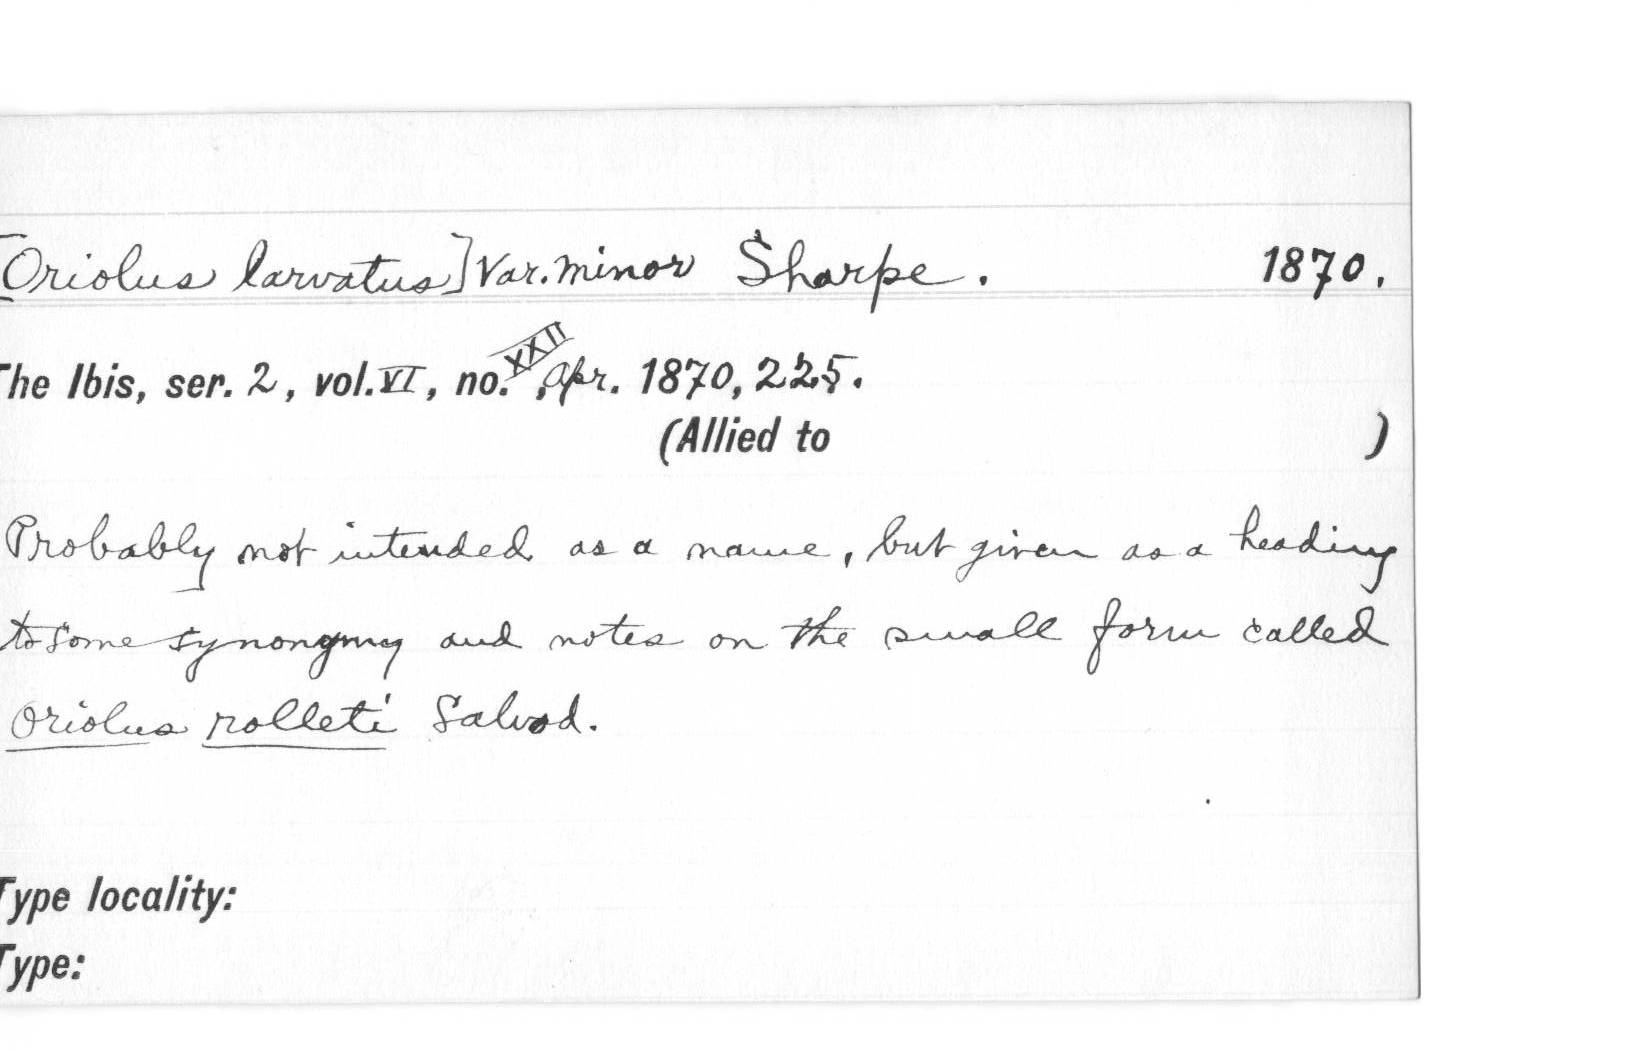 [Oriolus larvatus] Var. minor Sharpe. 1870.
The Ibis, ser. 2, vol. VI, no. XXII, Apr. 1870, 225.
(Allied to )
Probably not intended as a name, but given as a heading
to some synonymy and notes on the small form called
Oriolus rolleti Salvad.
Type locality:
Type: